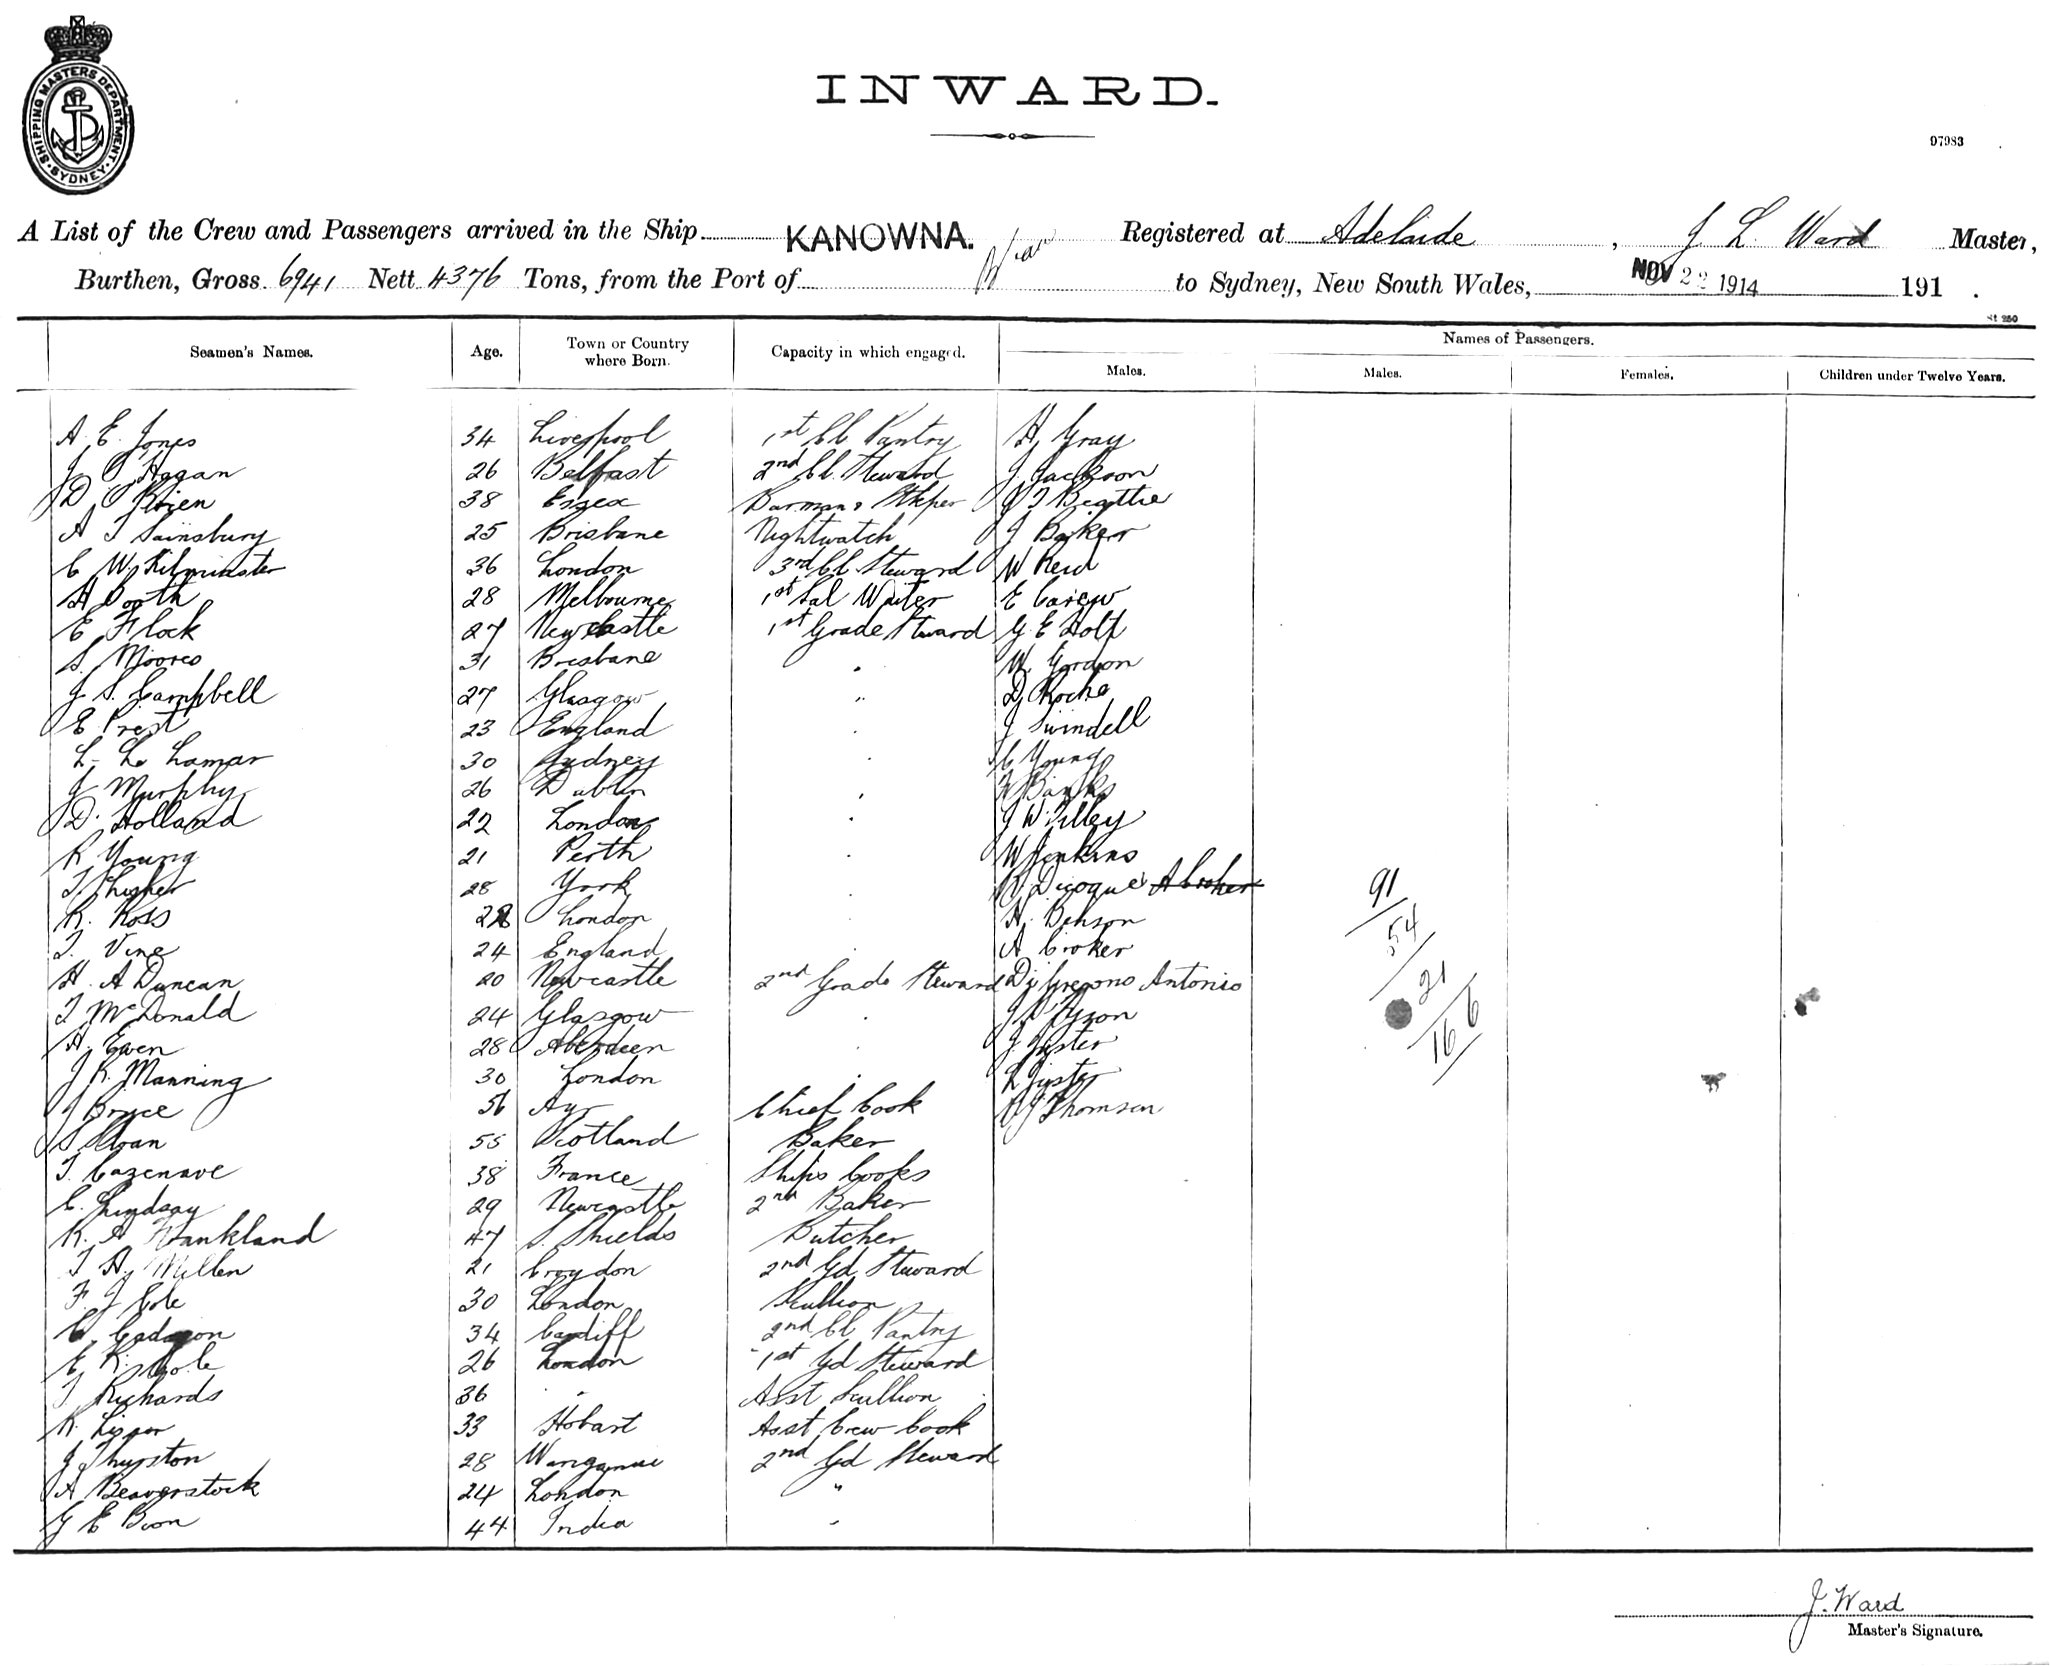 SHIPPING MASTERS DEPARTMENT · SYDNEY ·
INWARD.
97983
A List of the Crew and Passengers arrived in the Ship KANOWNA. Registered at Adelaide, J. L. Ward Master,
Burthen, Gross 6941 Nett 4376 Tons, from the Port of to Sydney, New South Wales, NOV 22 1914 191 .
St 250
Seamen's Names. Age. Town or Country where Born. Capacity in which engaged. Names of Passengers.
Males. Males. Females. Children under Twelve Years.
A. E. Jones 34 Liverpool 1st Cl Pantry H Gray
J O'Hagan 26 Belfast 2nd Cl. Steward J Jackson
D O'Brien 38 Essex Barman & Stkper J T Beattie
A T Sainsbury 25 Brisbane Nightwatch J Baker
C W. Kilminster 36 London 3rd Cl Steward W Reid
A 28 Melbourne 1st Sal Waiter E Carew
E Flock 27 Newcastle 1st Grade Steward G E Holt
S. Moores 31 Brisbane " W. Gordon
J S. Campbell 27 Glasgow " D Roche
E Prest 23 England " J Swindell
L. Le Lamar 30 Sydney " C Young
J Murphy 26 Dublin " Banks
D. Holland 22 London " J W Tilley
R Young 21 Perth " W Jenkins
T 28 York " A Croker
R. Ross 28 London " H. Benson
T. Vine 24 England " A Croker
H. A Duncan 20 Newcastle 2nd Grade Steward Di Gregorio Antonio
T McDonald 24 Glasgow "
A. Ewen 28 Aberdeen " J.
J R. Manning 30 London "
J Bryce 56 Ayr Chief Cook Thomsen
S. Sloan 55 Scotland Baker
T. Cazenave 38 France Ships Cooks
C. Lindsay 29 Newcastle 2nd Baker
R. A Wankland 47 S. Shields Butcher
T A. Millen 21 Croydon 2nd Gd Steward
F. J Cole 30 London Scullion
C. Cadogon 34 Cardiff 2nd Cl Pantry
E R. Cole 26 London 1st Gd Steward
T Richards 36 " Asst Scullion
R. 33 Hobart Asst Crew Cook
J Thurston 28 Wanganui 2nd Gd Steward
A Beaverstock 24 London "
G E Bion 44 India "
91
54
21
166
J. Ward
Master's Signature.